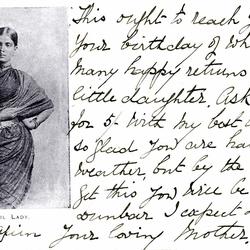 This ought to reach y
Your birthday of wh
Many happy returns
little daughter. Ask
for 5/- With my best
so glad you are ha
weather, but by the
get this you will be
Dunbar I expect -
IL LADY.
Your loving Mother